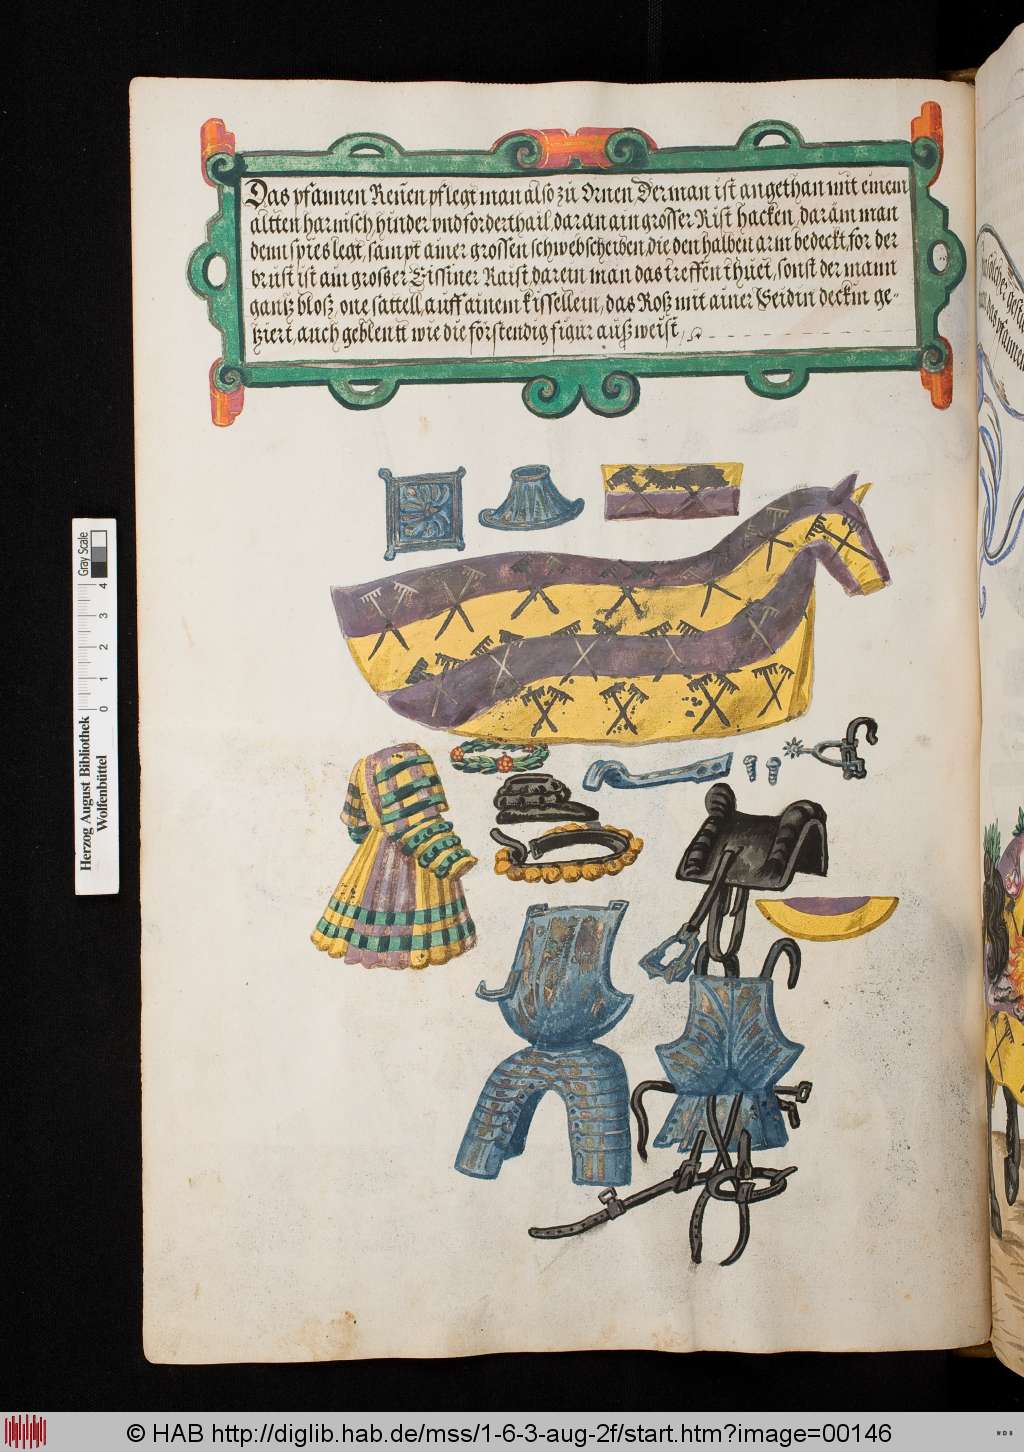 Das pfannen Reuen pflegt man also zu Ornen Der man ist angethan mit einem
altten harnisch, hinder vnd forderthail, daran ain grosser Rist hacken, daram man
denn spies legt, sampt ainer grossen schwebscheiben, die den halben arm bedeckt, for der
brust ist ain grosser Eissiner Raist, darein man das treffen thuet, sonst der mann
gantz bloß, one sattell, auff ainem kissellein, das Roß mit ainer Seidin deckin ge-
tziert, auch geblentt wie die förstendig figur außweist,
Herzog August Bibliothek
Wolfenbüttel
0 1 2 3 4
Gray Scale
© HAB http://diglib.hab.de/mss/1-6-3-aug-2f/start.htm?image=00146